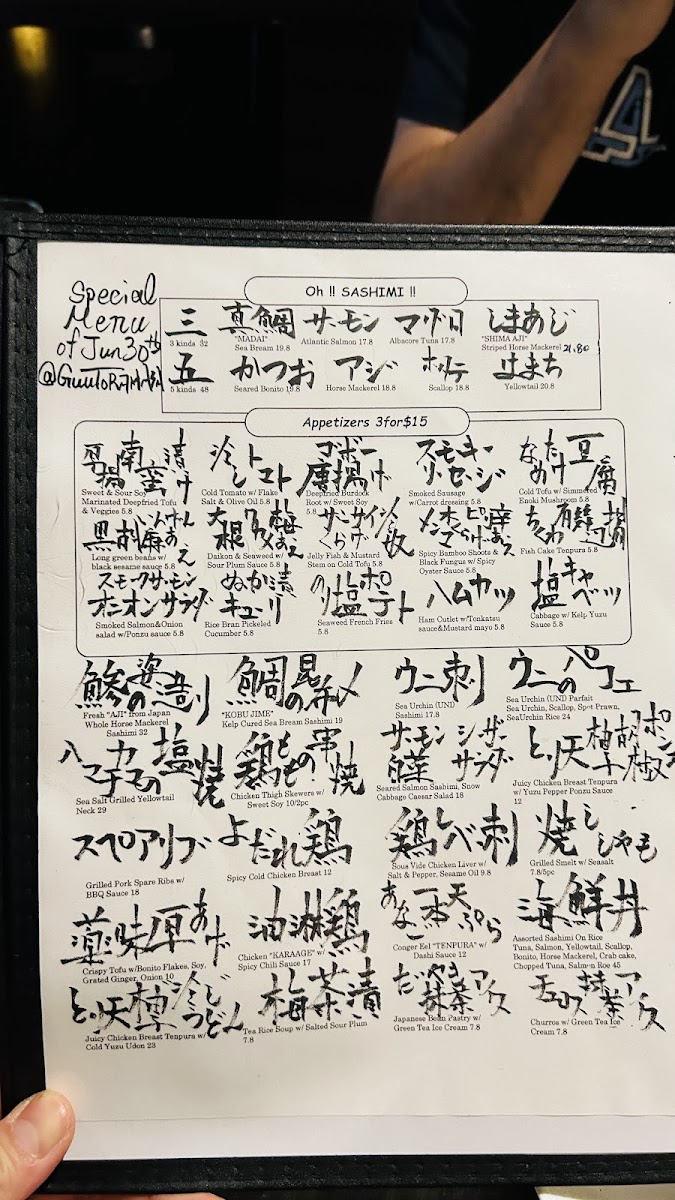 Special
Menu
of Jun 30th
Oh !! SASHIMI !!
三 真鯛 サーモン マグロ しまあじ
3 kinds 32
"MADAI"
Sea Bream 19.8
Atlantic Salmon 17.8
Albacore Tuna 17.8
"SHIMA AJI"
Striped Horse Mackerel 21.80
五 かつお アジ ホタテ はまち
5 kinds 48
Seared Bonito 19.8
Horse Mackerel 18.8
Scallop 18.8
Yellowtail 20.8
Appetizers 3for$15
厚揚南蛮漬け
Sweet & Sour Soy
Marinated Deepfried Tofu
& Veggies 5.8
冷しトマト
Cold Tomato w/ Flake
Salt & Olive Oil 5.8
ゴボー唐揚げ
Deepfried Burdock
Root w/ Sweet Soy
5.8
スモーキーソーセージ
Smoked Sausage
w/Carrot dressing 5.8
なめたけ豆腐
Cold Tofu w/ Simmered
Enoki Mushroom 5.8
いんげん黒胡麻あえ
Long green beans w/
black sesame sauce 5.8
大根わかめ梅あえ
Daikon & Seaweed w/
Sour Plum Sauce 5.8
Jelly Fish & Mustard
Stem on Cold Tofu 5.8
メンマ ピリ辛あえ
Spicy Bamboo Shoots &
Black Fungus w/ Spicy
Oyster Sauce 5.8
ちくわ磯辺揚
Fish Cake Tenpura 5.8
スモークサーモン
オニオンサラダ
Smoked Salmon&Onion
salad w/Ponzu sauce 5.8
ぬか漬
キューリ
Rice Bran Pickeled
Cucumber 5.8
のり塩ポテト
Seaweed French Fries
5.8
ハムカツ
Ham Cutlet w/Tonkatsu
sauce&Mustard mayo 5.8
塩キャベツ
Cabbage w/ Kelp Yuzu
Sauce 5.8
鯵の姿造り
Fresh "AJI" from Japan
Whole Horse Mackerel
Sashimi 32
鯛の昆布〆
"KOBU JIME"
Kelp Cured Sea Bream Sashimi 19
ウニ刺
Sea Urchin (UNI)
Sashimi 17.8
ウニのパフェ
Sea Urchin (UNI) Parfait
Sea Urchin, Scallop, Spot Prawn,
SeaUrchin Rice 24
ハマチカマの塩焼
Sea Salt Grilled Yellowtail
Neck 29
鶏ももの串焼
Chicken Thigh Skewers w/
Sweet Soy 10/2pc
サーモン白菜シーザーサラダ
Seared Salmon Sashimi, Snow
Cabbage Caesar Salad 18
とり天柚胡椒ポンズ
Juicy Chicken Breast Tenpura
w/ Yuzu Pepper Ponzu Sauce
12
スペアリブ
Grilled Pork Spare Ribs w/
BBQ Sauce 18
よだれ鶏
Spicy Cold Chicken Breast 12
鶏レバー刺
Sous Vide Chicken Liver w/
Salt & Pepper, Sesame Oil 9.8
焼ししゃも
Grilled Smelt w/ Seasalt
7.8/5pc
薬味厚あげ
Crispy Tofu w/Bonito Flakes, Soy,
Grated Ginger, Onion 10
油淋鶏
Chicken "KARAAGE" w/
Spicy Chili Sauce 17
あなご一本天ぷら
Conger Eel "TENPURA" w/
Dashi Sauce 12
海鮮丼
Assorted Sashimi On Rice
Tuna, Salmon, Yellowtail, Scallop,
Bonito, Horse Mackerel, Crab cake,
Chopped Tuna, Salmon Roe 45
とり天柚冷しうどん
Juicy Chicken Breast Tenpura w/
Cold Yuzu Udon 23
梅茶漬
Tea Rice Soup w/ Salted Sour Plum
7.8
どらやき抹茶アイス
Japanese Bean Pastry w/
Green Tea Ice Cream 7.8
チュロス抹茶アイス
Churros w/ Green Tea Ice
Cream 7.8